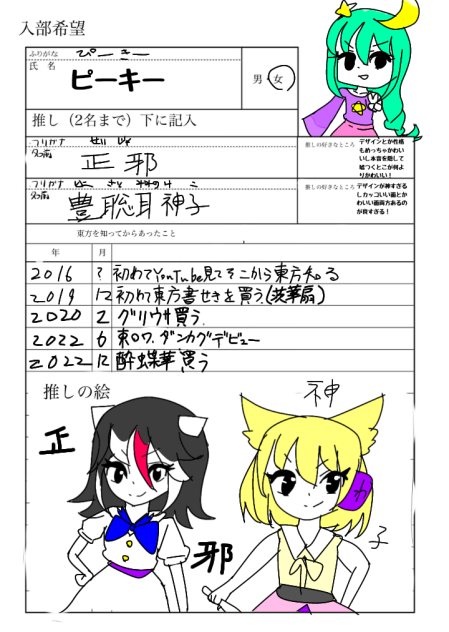 入部希望
ふりがな ぴーきー
氏名 ピーキー
男 女
推し（2名まで）下に記入
フリガナ
名前 正邪
推しの好きなところ デザインとか性格
もめっちゃかわい
いし本音を隠して
嘘つくとこが何よ
りかわいい！
フリガナ
名前 豊聡耳神子
推しの好きなところ デザインが神すぎる
しカッコいい画とか
わいい画両方あるの
が良すぎる！
東方を知ってからあったこと
年 月
2016 ? 初めてYouTube見てそこから東方知る
2019 12 初めて東方書せきを買う(茨華扇)
2020 2 グリウサ買う
2022 6 東ロワ、ダンカグデビュー
2022 12 酔蝶華買う
推しの絵
正
邪
神
子